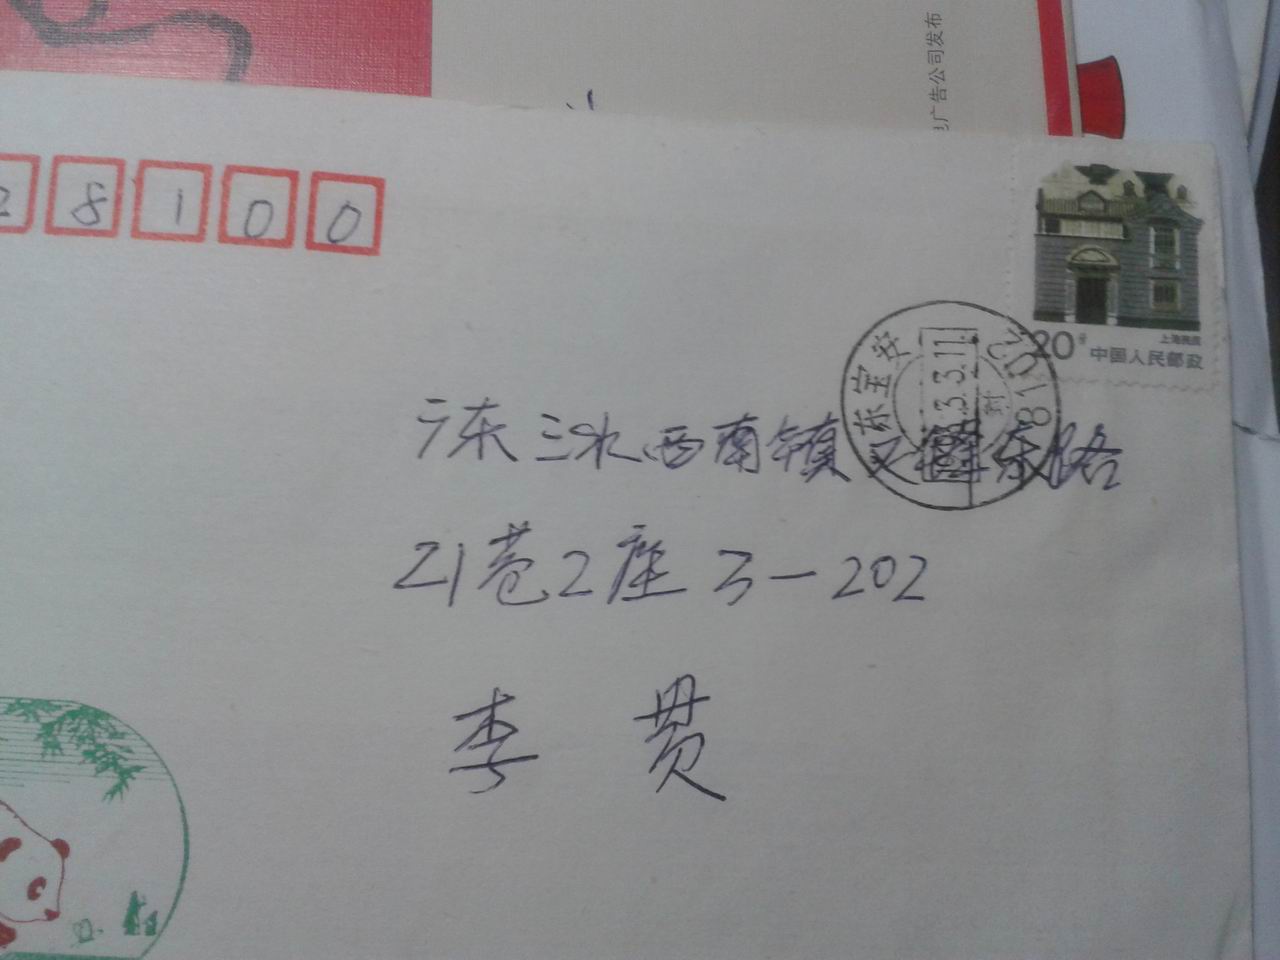 电广告公司发布
28100
20分
上海民居
中国人民邮政
东宝安
3.3.11
广东三水西南镇文锋东路
21巷2座3-202
李 贯